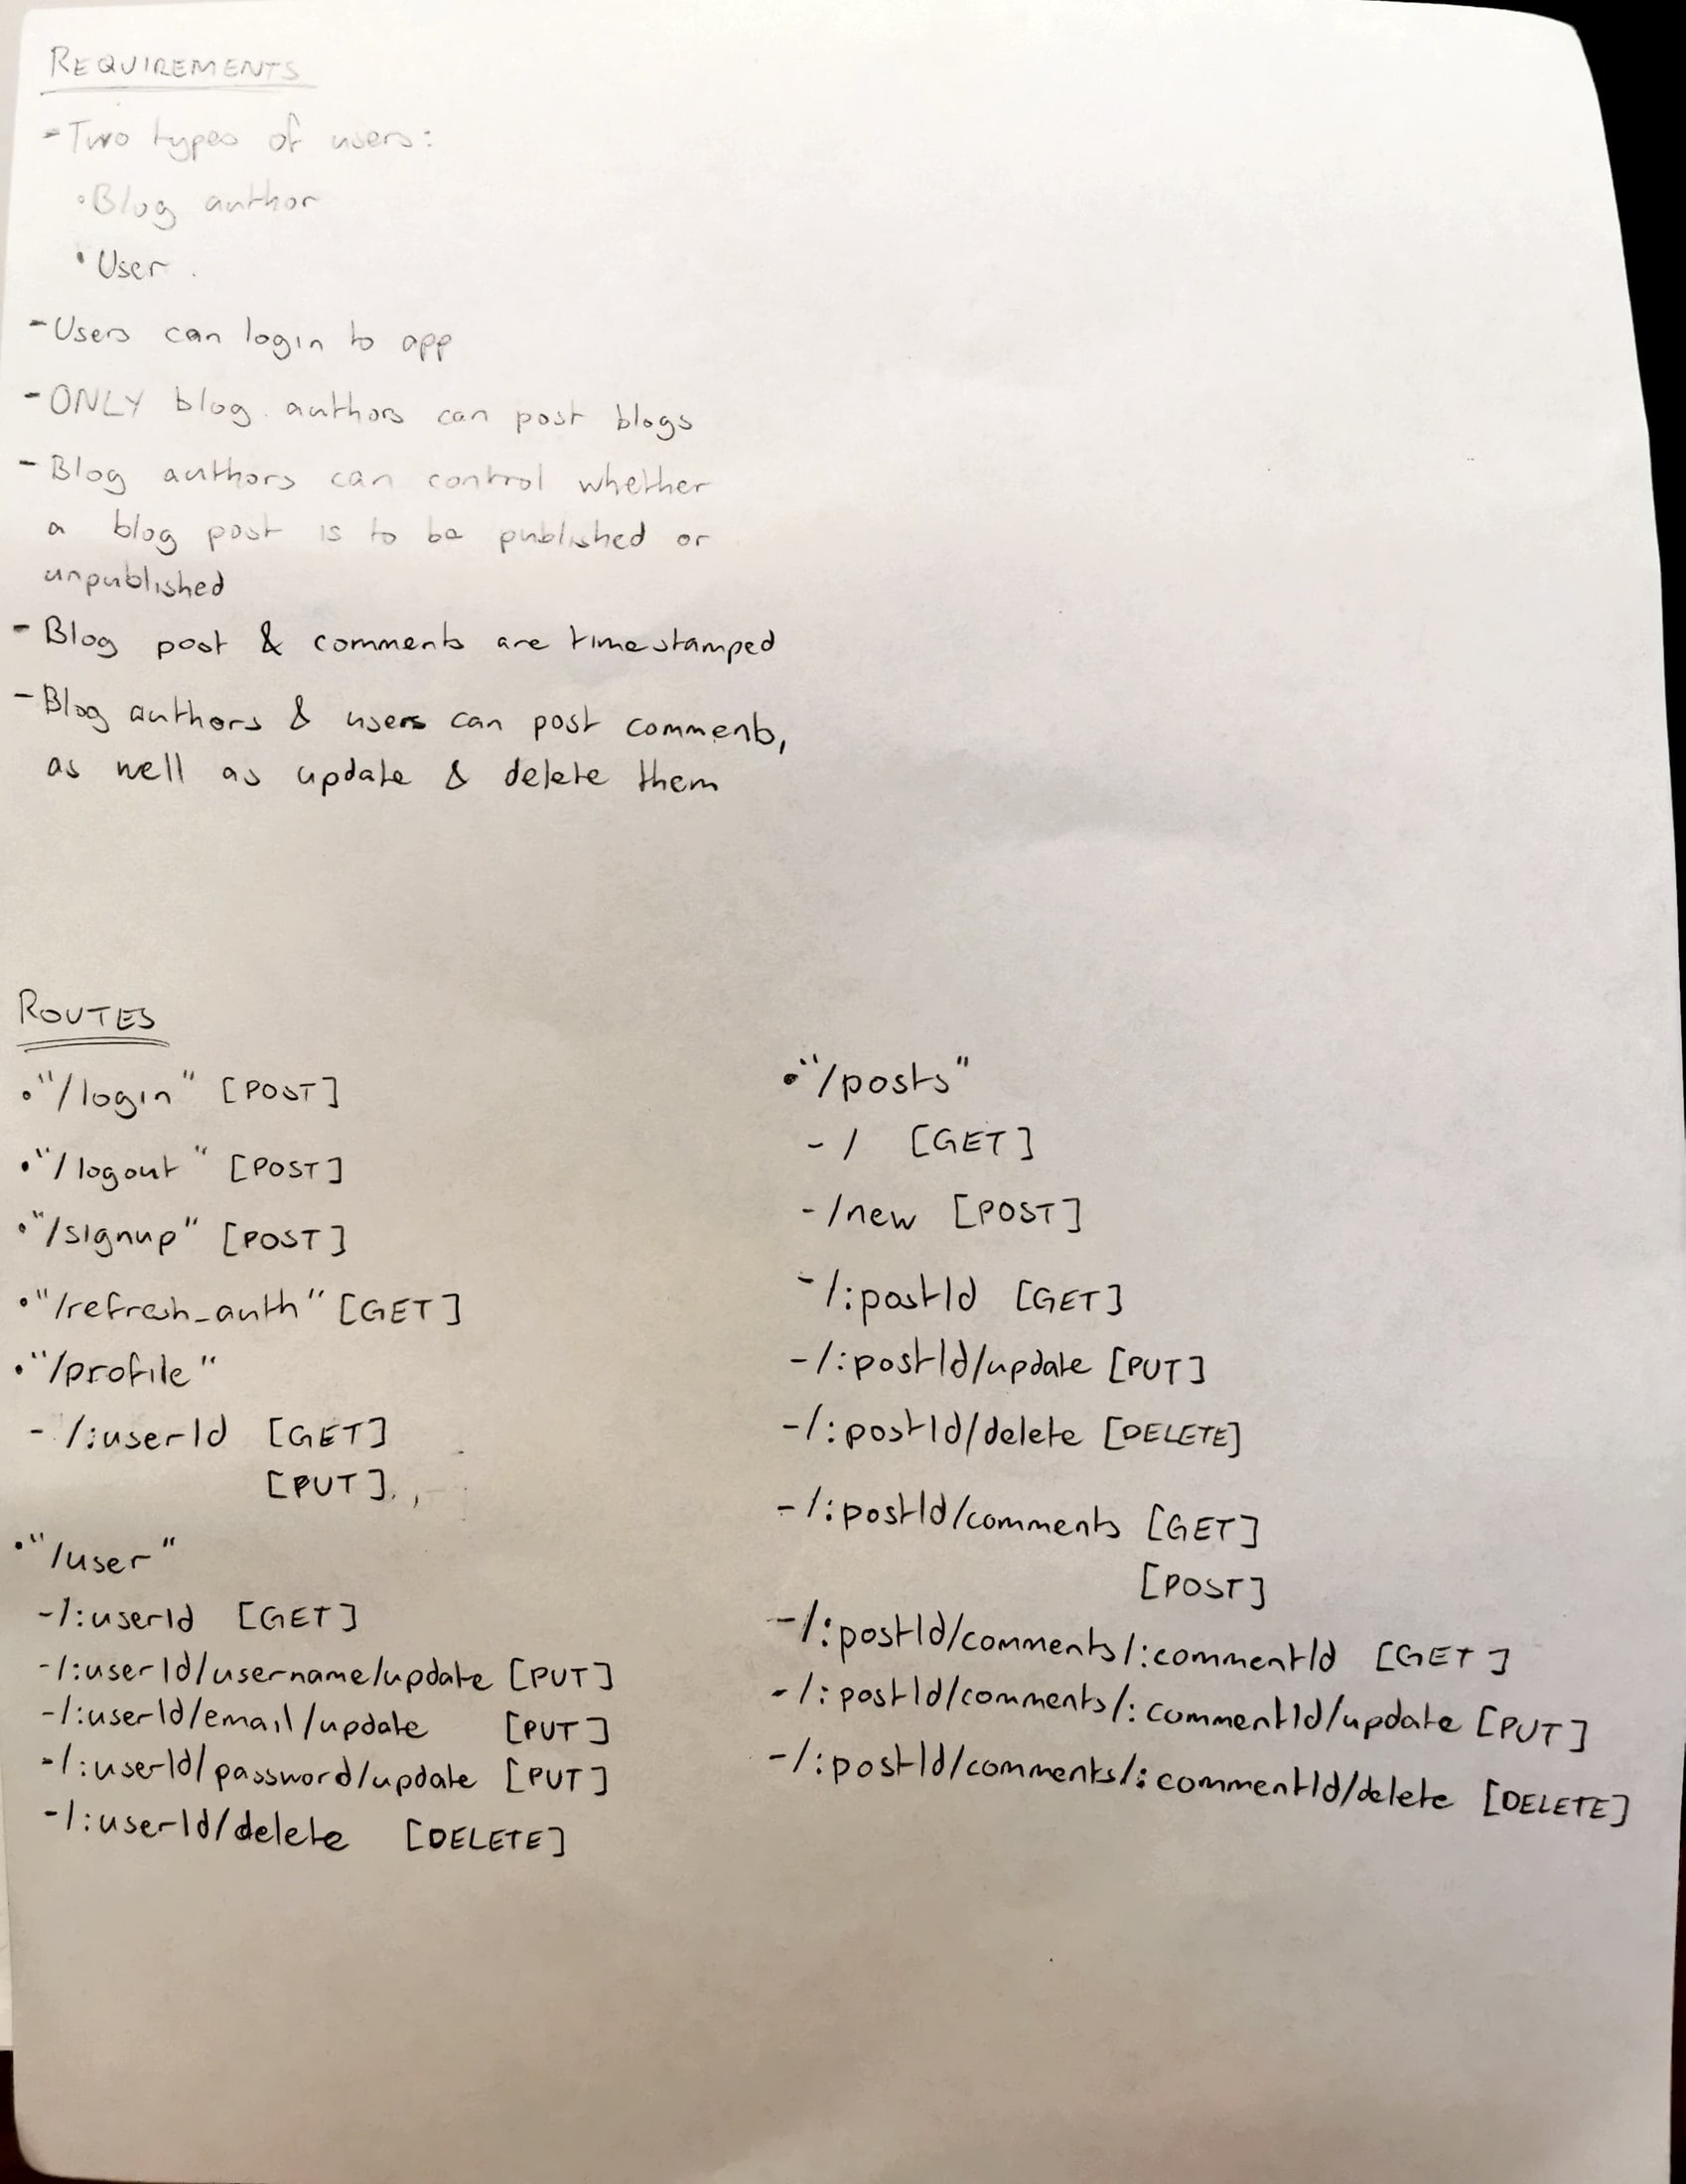 REQUIREMENTS
- Two types of users:
• Blog author
• User
- Users can login to app
- ONLY blog authors can post blogs
- Blog authors can control whether
a blog post is to be published or
unpublished
- Blog post & comments are timestamped
- Blog authors & users can post comments,
as well as update & delete them
ROUTES
• "/login" [POST]
• "/logout" [POST]
• "/signup" [POST]
• "/refresh_auth" [GET]
• "/profile"
- /:userId [GET]
[PUT]
• "/user"
- /:userId [GET]
- /:userId/username/update [PUT]
- /:userId/email/update [PUT]
- /:userId/password/update [PUT]
- /:userId/delete [DELETE]
• "/posts"
- / [GET]
- /new [POST]
- /:postId [GET]
- /:postId/update [PUT]
- /:postId/delete [DELETE]
- /:postId/comments [GET]
[POST]
- /:postId/comments/:commentId [GET]
- /:postId/comments/:commentId/update [PUT]
- /:postId/comments/:commentId/delete [DELETE]